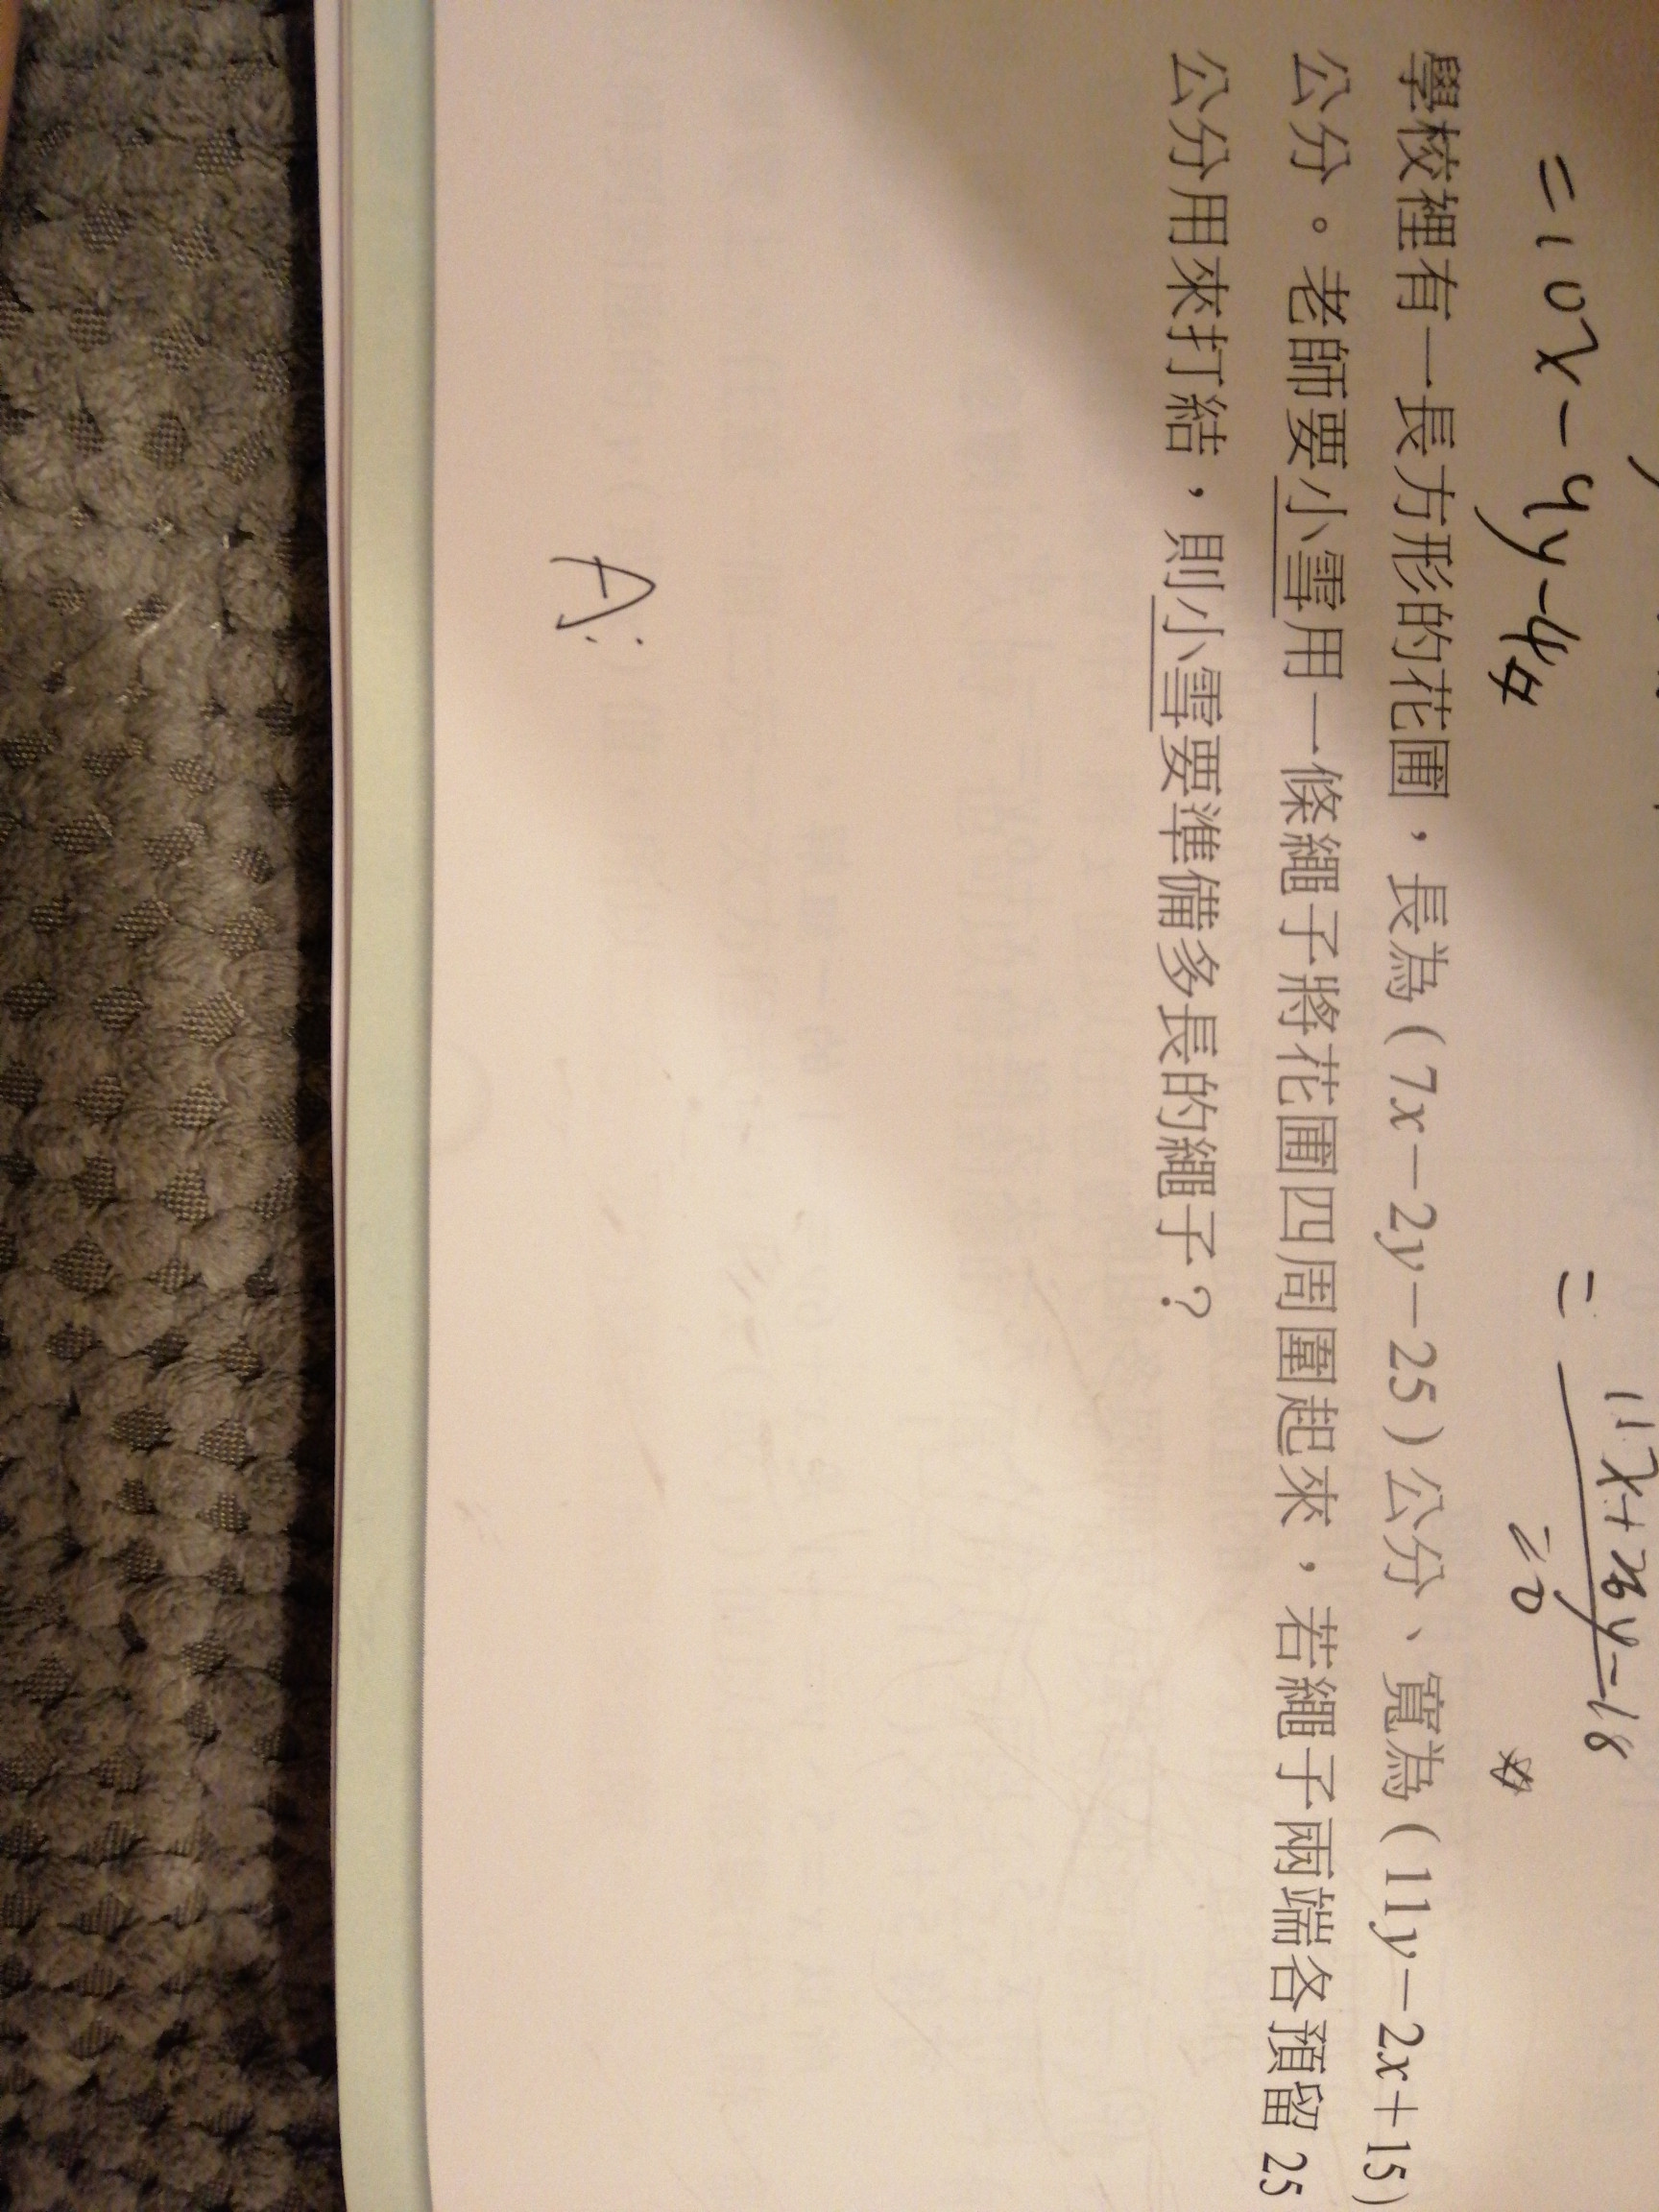 =10x-4y-4#
= 11x+26y-18
學校裡有一長方形的花圃，長為(7x－2y－25)公分、寬為(11y－2x＋15)
公分。老師要小雪用一條繩子將花圃四周圍起來，若繩子兩端各預留 25
公分用來打結，則小雪要準備多長的繩子？
A: